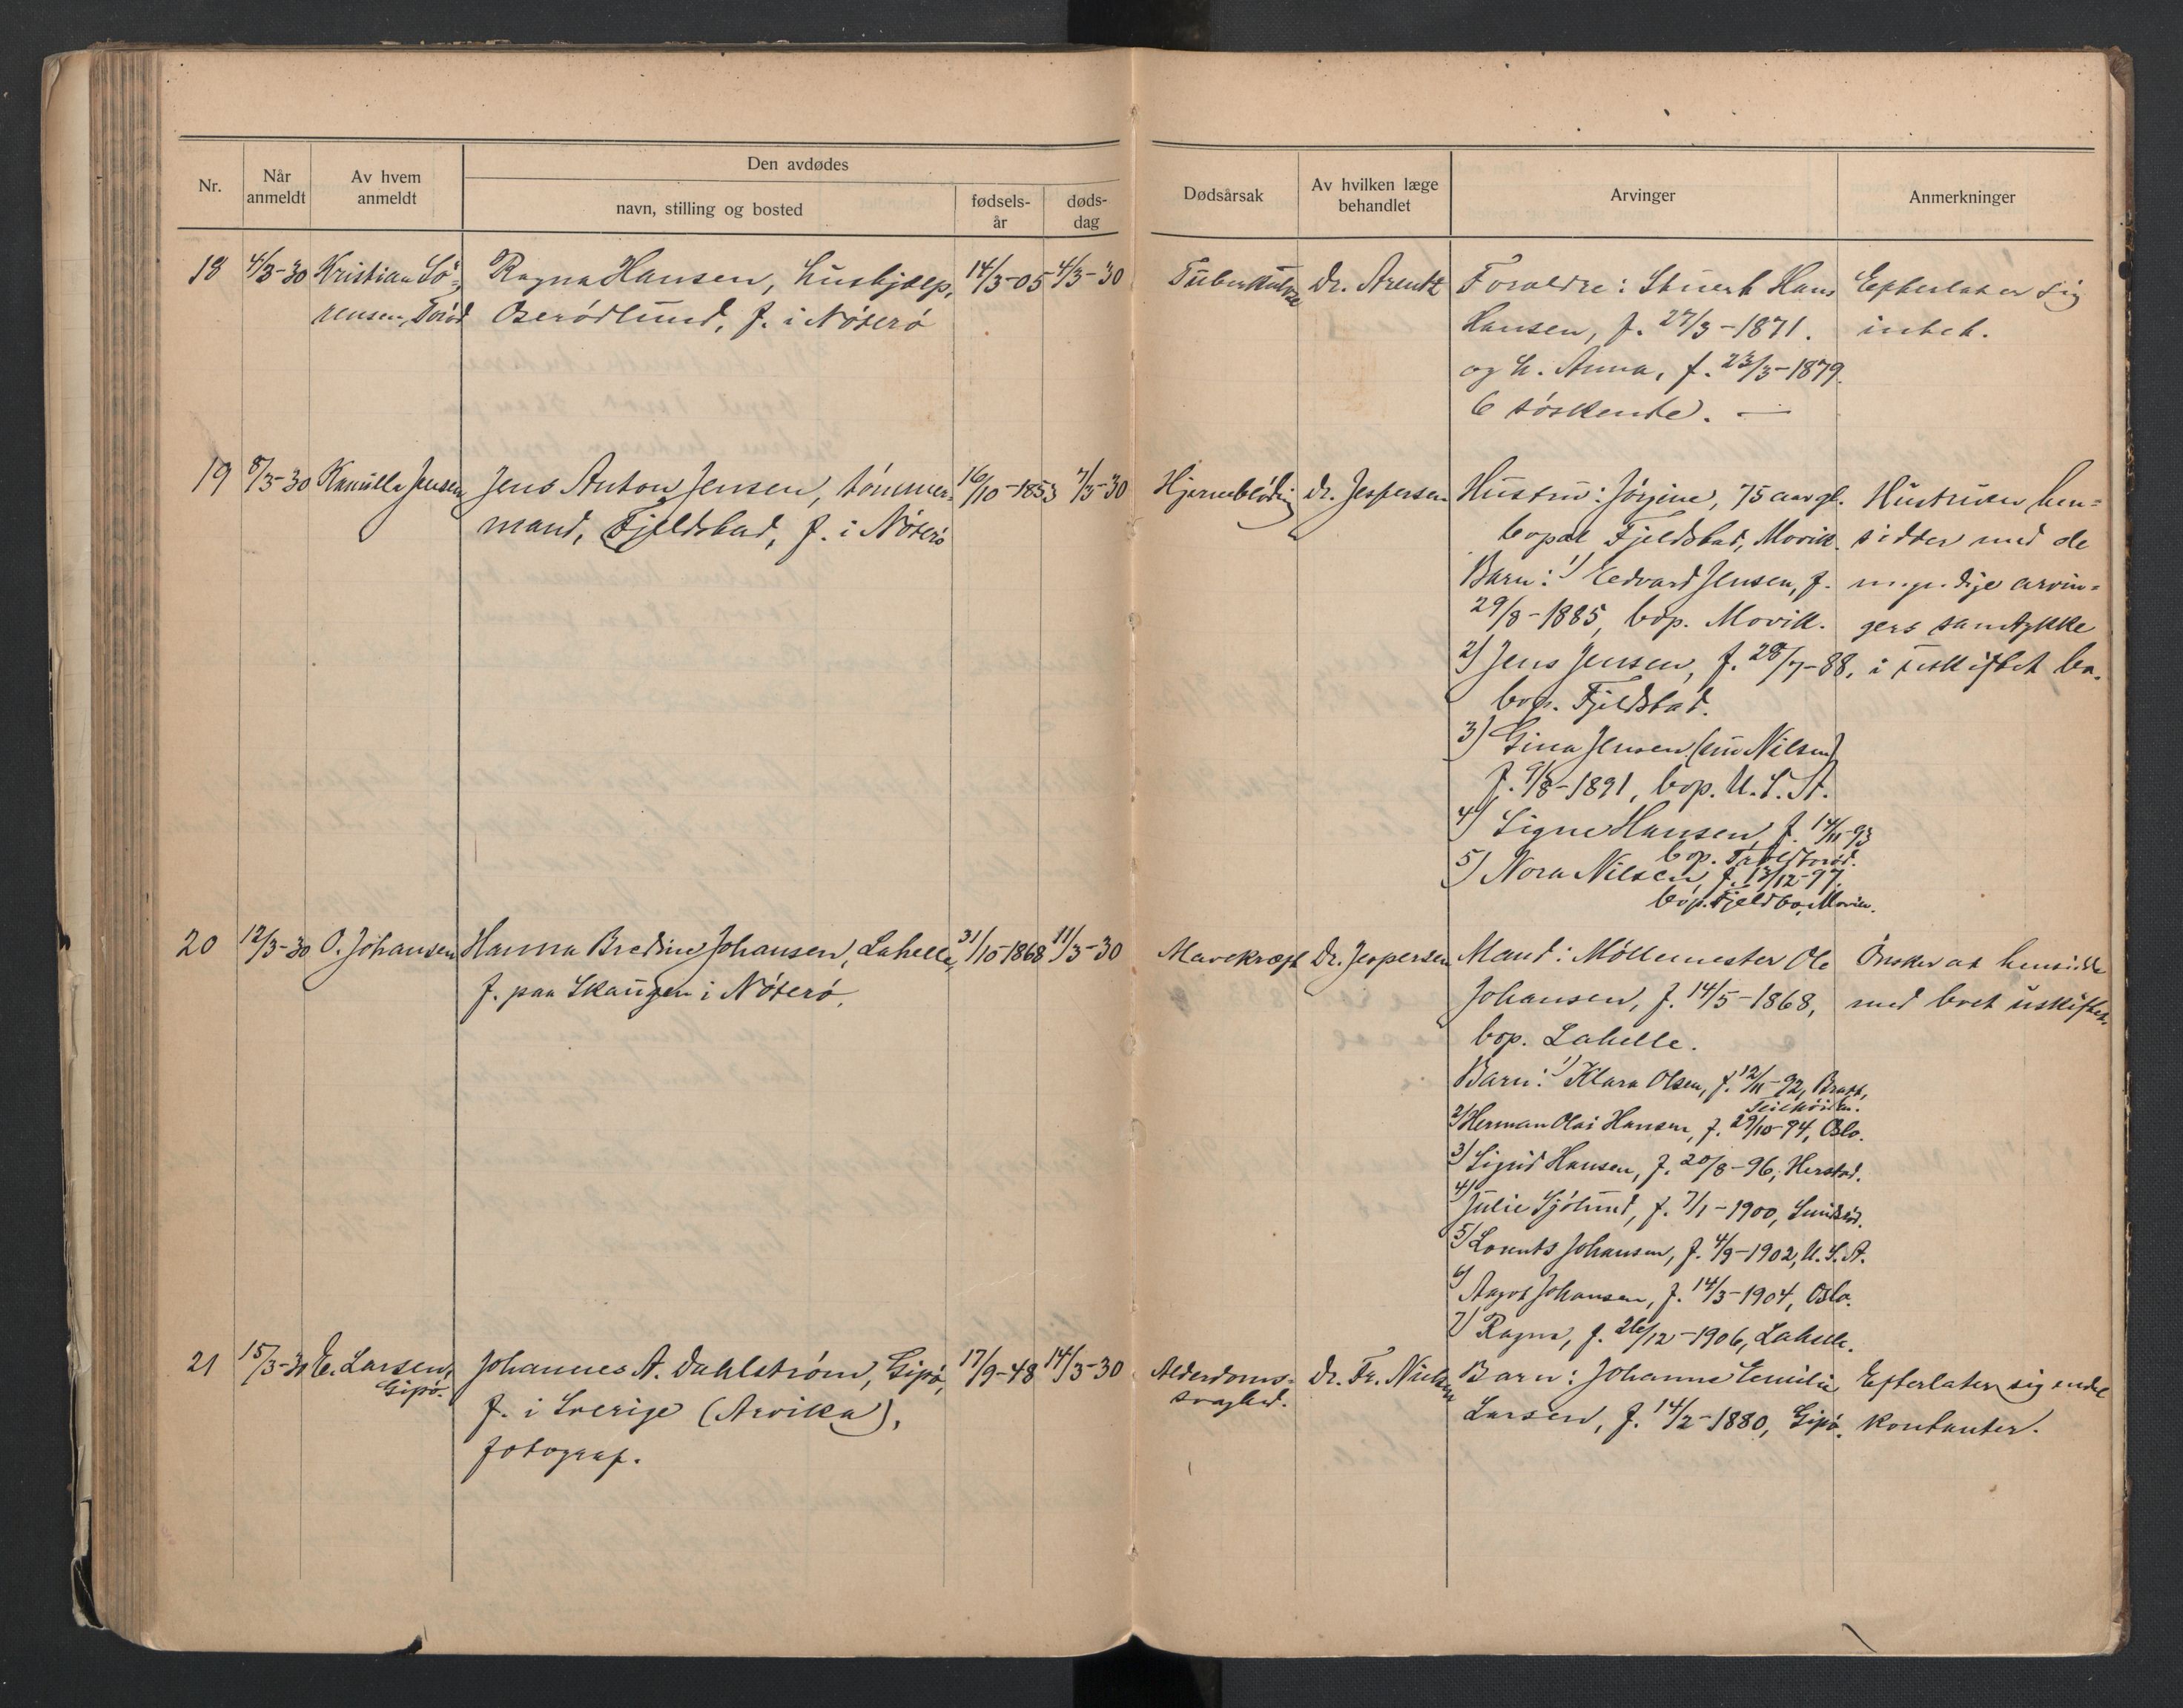 Nr.
Når anmeldt
Av hvem anmeldt
Den avdødes
navn, stilling og bosted
fødsels-
år
døds-
dag
Dødsårsak
Av hvilken læge
behandlet
Arvinger
Anmerkninger
18 4/3-30 Kristian Sö- Ragna Hansen, hushjælp, 14/3-05 4/3-30 Tuberkulose Dr. Arentz Foraldre: Stuert Hans Efterlater sig
rensen, Torød Oserödlund, f. i Nöterö Hansen, f. 27/3-1871. intet.
og h. Anna, f. 23/3-1879.
6 söskende. —
19 8/3-30 Kamilla Jensen Jens Anton Jensen, tömmer- 16/10-1853 7/3-30 Hjerneblödn. Dr. Jespersen Hustru: Jörgine, 75 aar gl. Hustruen hen-
mand, Fjeldstad, f. i Nöterö bopæl Fjeldstad, Movik. sidder med de
Barn: 1) Edvard Jensen, f. myndige arvin-
29/8-1885, bop. Movik. gers samtykke
2) Jens Jensen, f. 28/7-88, i uskiftet bo.
bop. Fjeldstad.
3) Gina Jensen (nu Nilsen)
f. 9/8-1891, bop. U. S. A.
4) Signe Hansen f. 14/11-93
bop.
5) Nora Nilsen, f. 13/12-97.
bop. Fjeldbo, Movik.
20 12/3-30 O. Johansen Hanna Bredine Johansen, Lahelle, 31/10-1868 11/3-30 Mavekræft Dr. Jespersen Mand: Möllemester Ole Önsker at hensidde
f. paa Skaugen i Nöterö. Johansen, f. 14/5-1868, med boet uskiftet.
bop. Lahelle.
Barn: 1) Klara Olsen, f. 12/11-92, Bratt,
2) Herman Olai Hansen, f. 29/10-94, Oslo.
3) Sigrid Hansen, f. 20/8-96, Herstad.
4) Julie Sjölund, f. 7/1-1900,
5) Lorents Johansen, f. 4/9-1902, U. S. A.
6) Aagot Johansen, f. 14/3-1904, Oslo.
7) Ragna, f. 26/12-1906, Lahelle.
21 15/3-30 E. Larsen, Johannes A. Dahlström, Gipö, 17/9-48 14/3-30 Alderdoms- Dr. Fr. Nielsen Barn: Johanne Emilie Efterlater sig endel
Gipö. f. i Sverige (Arvika), svaghed. Larsen, f. 14/2-1880, Gipö. kontanter.
fotograf.